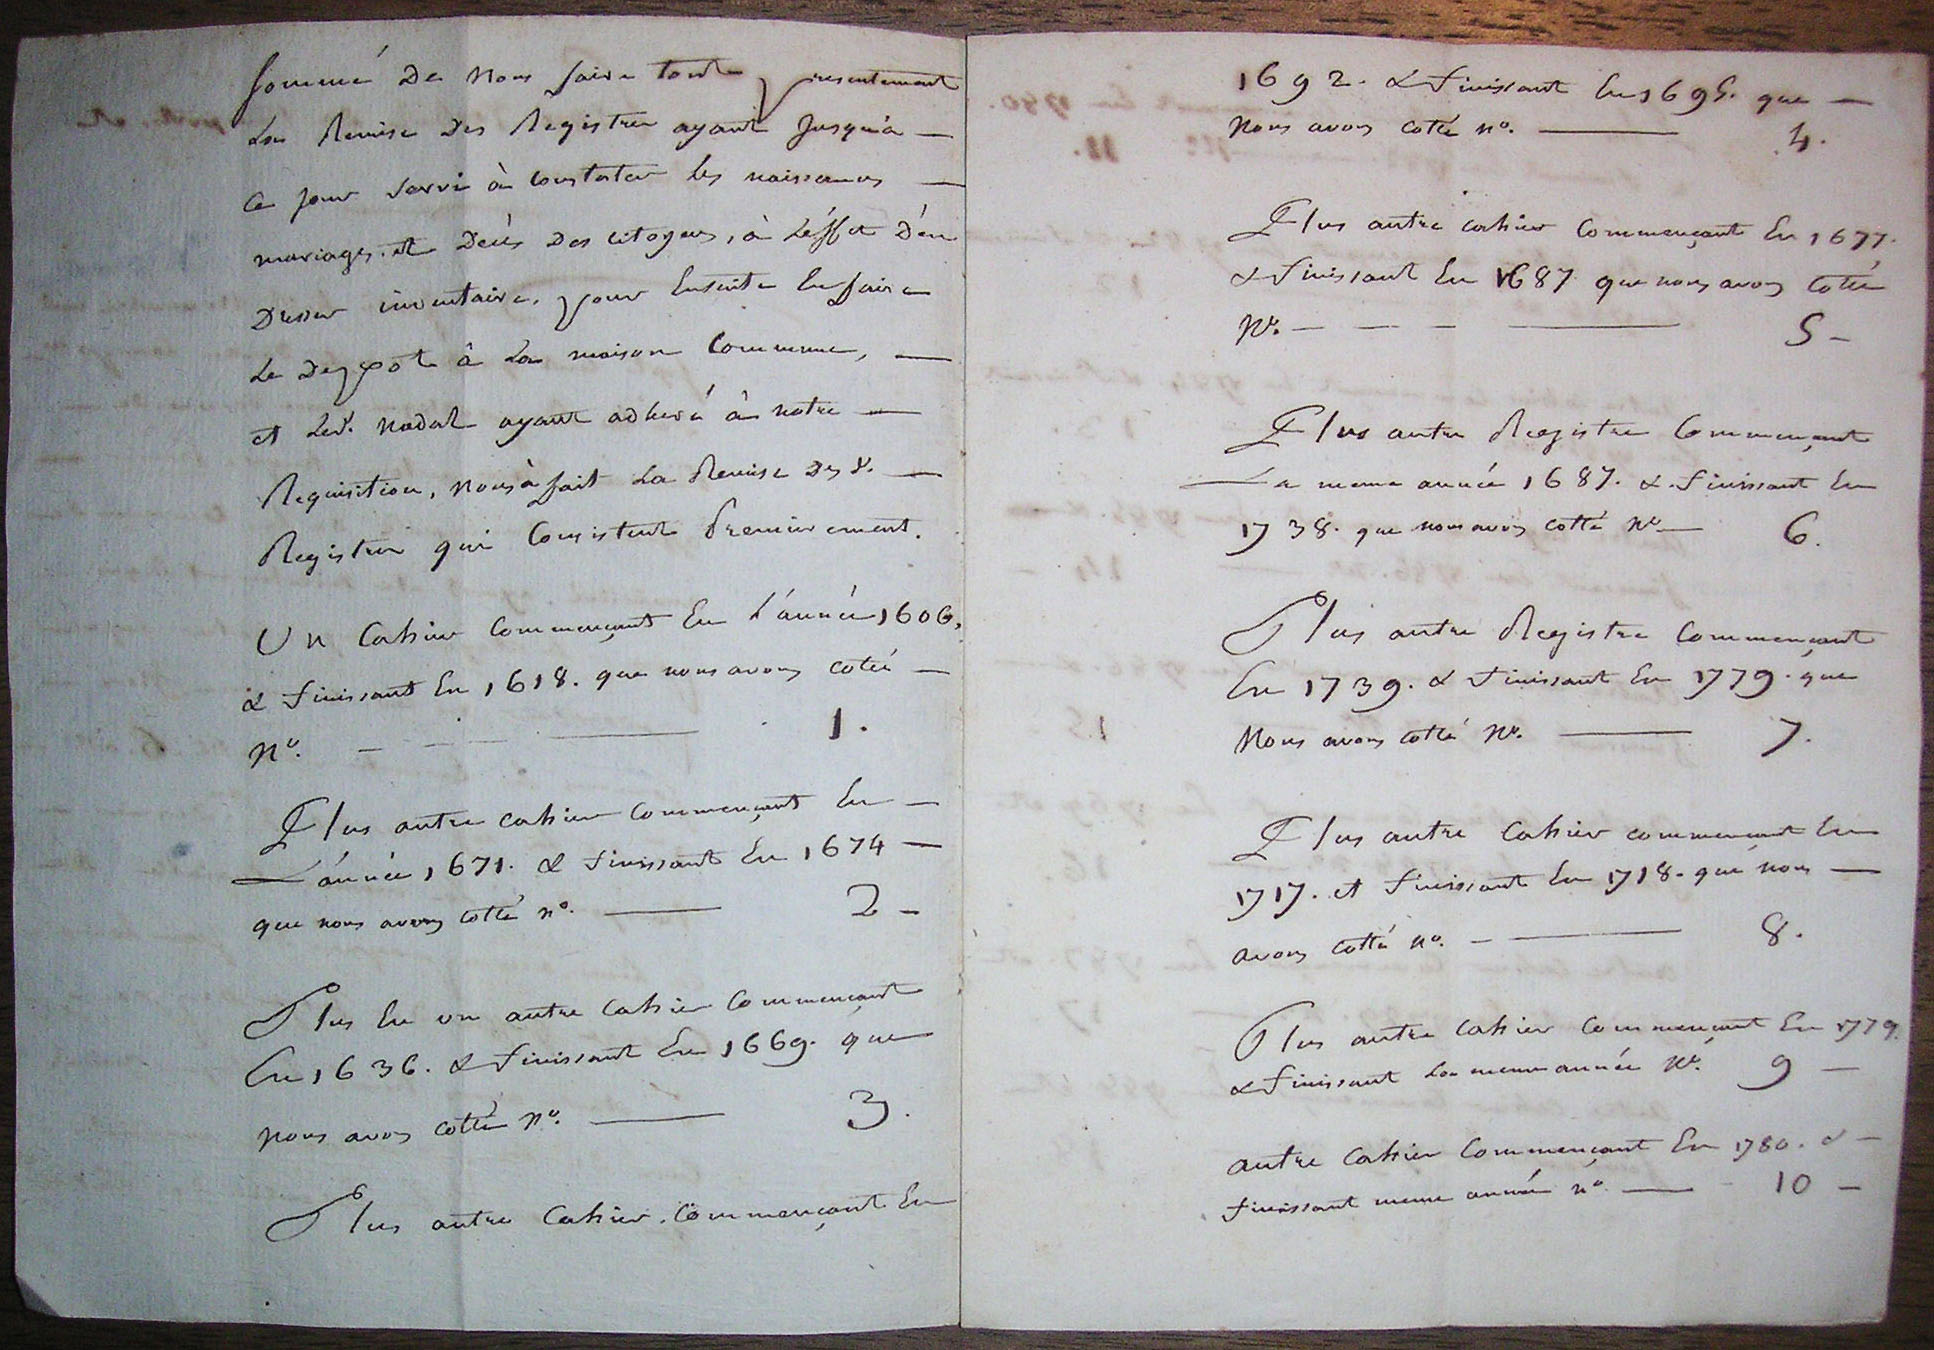 sommé De Nous faire tout presentement
La Remise Des Registres ayant Jusqu'à —
Ce jour servi à Constater les naissances —
mariages et Décès Des citoyens, à L'éffet D'en
Dresser inventaire, pour Ensuite En faire
Le Deppot à La maison Commune, —
et Led. Nodal ayant adheré à notre —
Requisition, nous à fait La Remise Desd. —
Registres qui Consistent Premierement.
Un Cahier Commençant En L'année 1606,
& finissant En 1618. que nous avons cotté —
N°. — — — — 1.
Plus autre cahier Commençant En —
L'année 1671. & finissant En 1674 —
que nous avons cotté n°. — 2 —
Plus En un autre Cahier Commençant
En 1636. & finissant En 1669. que
nous avons cotté N°. — 3.
Plus autre Cahier Commençant En
1692. & finissant En 1695. que —
Nous avons cotté n°. — 4.
Plus autre cahier Commençant En 1677.
& finissant En 1687. que nous avons Cotté
N°. — — — — 5 —
Plus autre Registre Commençant
La meme année 1687. & finissant En
1738. que nous avons cotté N° — 6.
Plus autre Registre Commençant
En 1739. & finissant En 1779. que
Nous avons cotté N°. — 7.
Plus autre Cahier commençant En
1717. et finissant En 1718. que nous —
avons cotté n°. — — 8.
Plus autre Cahier Commençant En 1779.
& finissant La meme année N°. 9 —
autre Cahier Commençant En 1780. & —
finissant meme année n° — 10 —